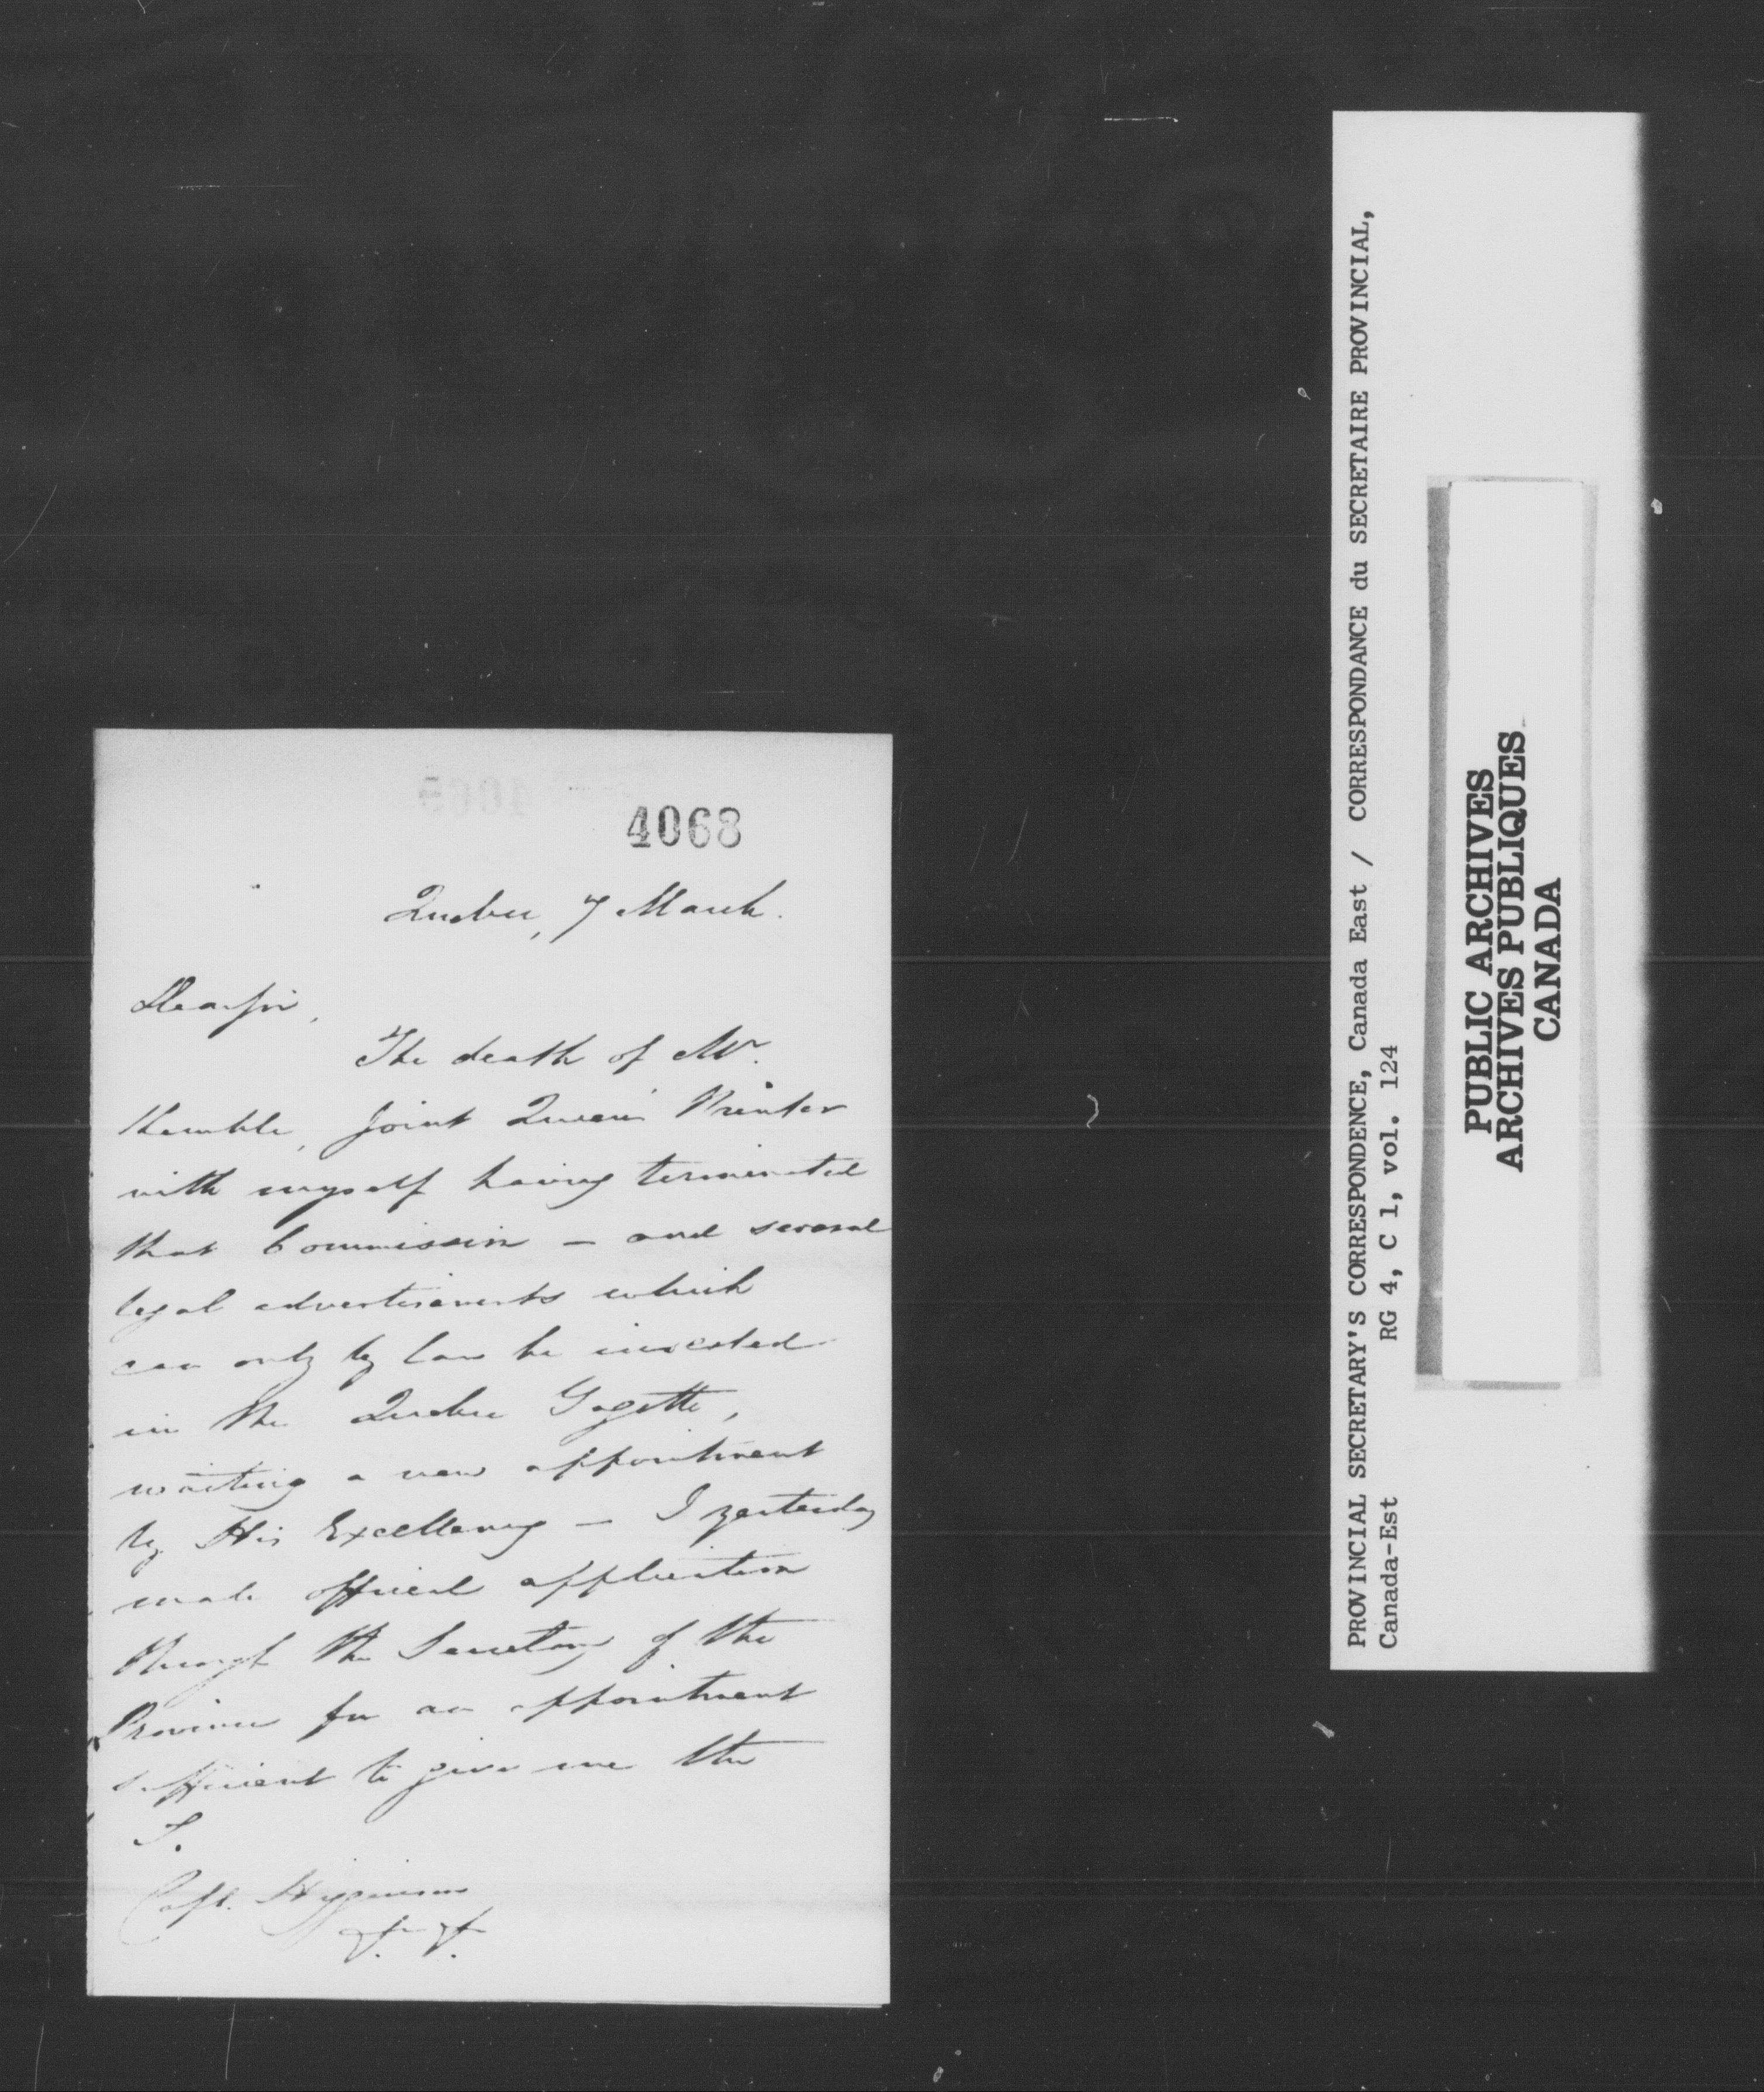 4068
Quebec, 7 March.
Dear Sir,
The death of Mr.
Kemble, Joint Queen's Printer
with myself having terminated
that Commission – and several
legal advertisements which
can only by law be inserted
in the Quebec Gazette,
waiting a new appointment
by His Excellency – I yesterday
made official application
through the Secretary of the
Province for an appointment
sufficient to give me the
Capt. Higginson
PROVINCIAL SECRETARY'S CORRESPONDENCE, Canada East / CORRESPONDANCE du SECRETAIRE PROVINCIAL,
Canada-Est RG 4, C 1, vol. 124
PUBLIC ARCHIVES
ARCHIVES PUBLIQUES
CANADA